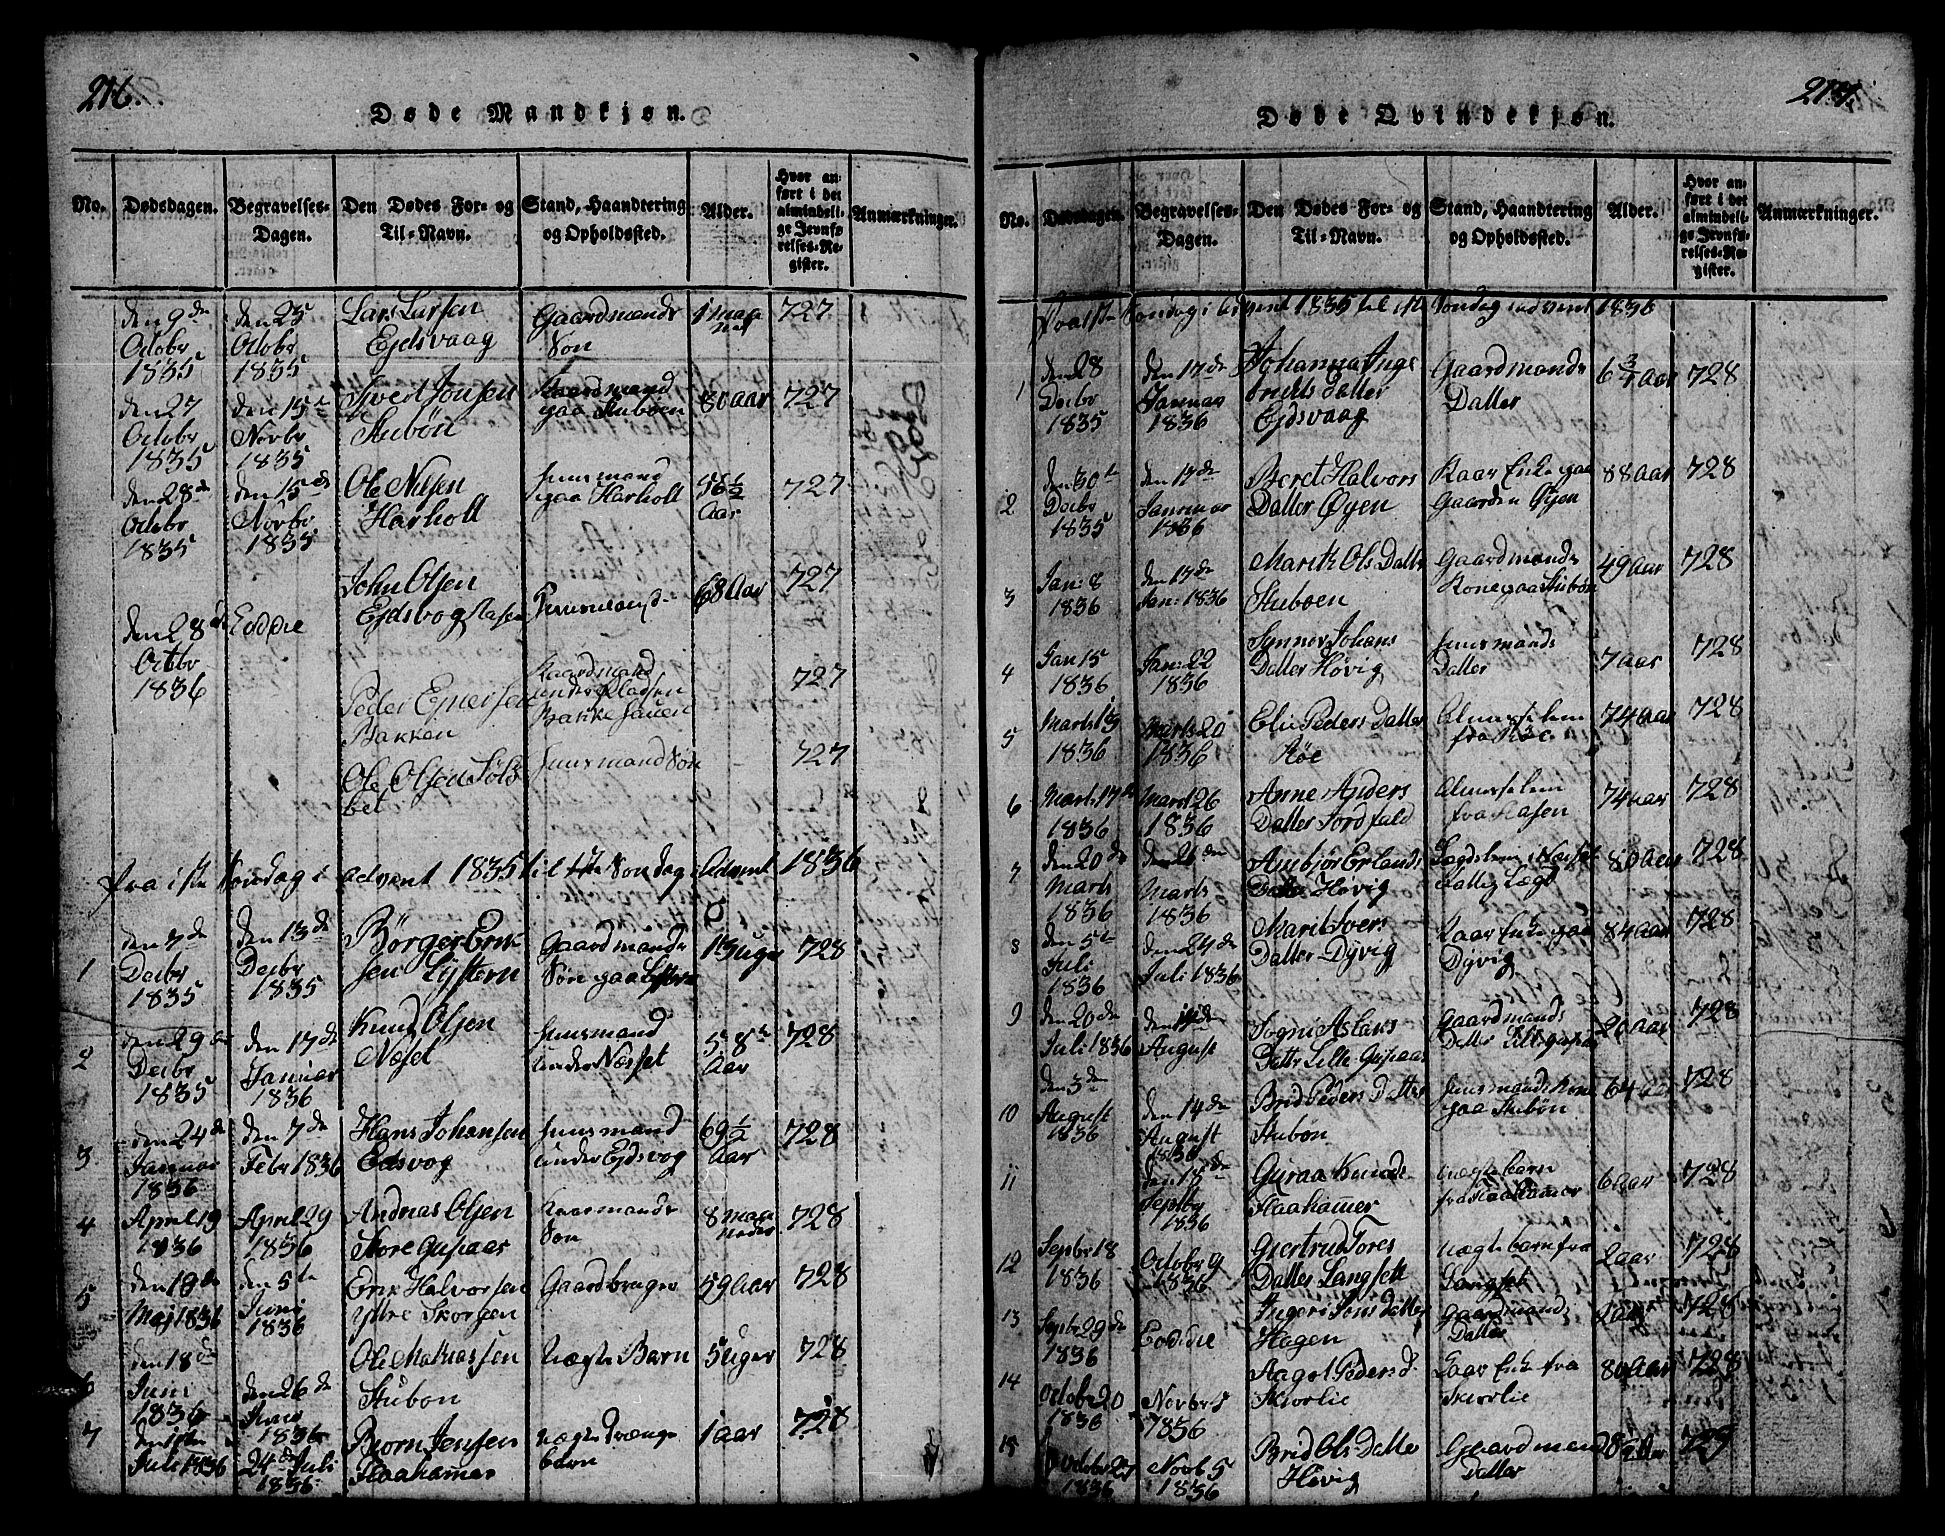 216.
Døde Mandkjøn.
No.
Dødsdagen.
Begravelses-
Dagen.
Den Dødes For- og
Til-Navn.
Stand, Haandtering
og Opholdssted.
Alder.
Hvor an-
ført i det
almindeli-
ge Jevnfø-
relses-Re-
gister.
Anmærkninger.
den 9de Octobr 1835
den 25 Octobr 1835
Lars Larsen Ejdsvaag
Gaardmands Søn
1 maa
727
den 27 Octobr 1835
den 15de Novbr 1835
Ivert Jonsen Stubøn
Gaardmand paa Stuboen
80 aar
727
den 28de Octobr 1835
den 15de Novbr 1835
Ole Nilsen Harholt
Huusmand paa Harholt
56½ Aar
727
den 28de Octbr 1836
John Olsen Ejdsvog
68 Aar
727
Peder Ejnersen Bakken
Gaardmand under Pladsen Bakke
727
Ole Olsen
Huusmand Søn
727
fra 1ste Søndag i advent 1835 til 1ste Søndag i Advent 1836
1
den 7de Decbr 1835
den 13de Decbr 1835
Børger Erik
sen Lystern
Gaardmands
Søn paa Lystern
1½ Uge
728
2
den 29de Decbr 1835
den 17de Januar 1836
Knud Olsen Næset
Huusmand under Næsset
58 Aar
728
3
den 24de Januar 1836
den 7de Febr 1836
Hans Johansen Edsvog
Huusmand under Ejdsvog
69½ Aar
728
4
April 19 1836
April 29 1836
Andreas Olsen Store Gusiaas
Søn
8 maa
728
5
den 19de Maj 1836
den 5te Juni 1836
Erik Halvorsen Ytre Skorgen
Gaardbruger
59 Aar
728
6
den 18de Juni 1836
den 26de Juni 1836
Ole Mathiassen Stubøn
Uægte Barn
5 Uger
728
7
Juli 1836
24de Juli 1836
Bjørn Jensen Flaahamer
Uægte Drænge
barn
1 aar
728
217.
Døde Qvindekjøn.
No.
Dødsdagen.
Begravelses-
Dagen.
Den Dødes For- og
Til-Navn.
Stand, Haandtering
og Opholdssted.
Alder.
Hvor an-
ført i det
almindeli-
ge Jevnfø-
relses-Re-
gister.
Anmærkninger.
Fra 1ste Søndag i advent 1835 til 1ste Søndag i advent 1836
1
den 28 Decbr 1835
den 17de Januar 1836
Johanna Inge
bredts Datter
Ejdsvaag
Gaardmands Datter
6¾ Aar
728
2
den 30te Decbr 1835
den 17de Januar 1836
Beret Halvors Datter Øyen
Kaar Enke paa Gaarden Øyen
88 Aar
728
3
Jan: 8 1836
den 17de Jan: 1836
Marith Ols Datter Stuboen
Gaardmands Kone paa Stubøn
49 Aar
728
4
Jan 15 1836
Jan: 22 1836
Synnøv Johans Datter Høvig
Huusmands Datter
7 aar
728
5
Marts 13 1836
Marts 20 1836
Eli Peders Datter Røe
Almisselem fra Røe
74 Aar
728
6
Marts 17de 1836
Marts 26 1836
Anne Anders Datter Tordfald
Almisselem fra Hasen
74 aar
728
7
den 20de Marts 1836
den 26de Marts 1836
Ambjør Erlands Datter Høvig
Lægdslem i
80 Aar
728
8
den 5te Juli 1836
den 24de Juli 1836
Marit Ivers Datter Dyvig
Kaar Enke paa Dyvig
84 Aar
728
9
den 20de Juli 1836
August
Aslaks
Datter Lille Gusiaas
Gaardmands Datter
20 Aar
728
10
den 3den August 1836
den 14de August 1836
Brid Peders Datter Stubøn
Huusmands Kone paa Stubøn
64
728
11
den 18de Septbr 1836
Guraa Knuds Flaahamer
uægte barn fra Flaahamer
6 aar
728
12
Septbr 18 1836
Octobr 9 1836
Giertrud Tores Datter Langset
uægte barn fra Langset
2 aar
728
13
Septbr 29de 1836
Ingeri Jens Datter Hagen
Gaardmands Datter
728
14
Octobr 20 1836
Novbr 5 1836
Aagot Peders d. Skiorlie
Kaar Enke fra Skiorlie
80 Aar
728
15
Octobr 27 1836
Novb 5 1836
Brid Ols Datter Høvig
Gaardmand Datter
729